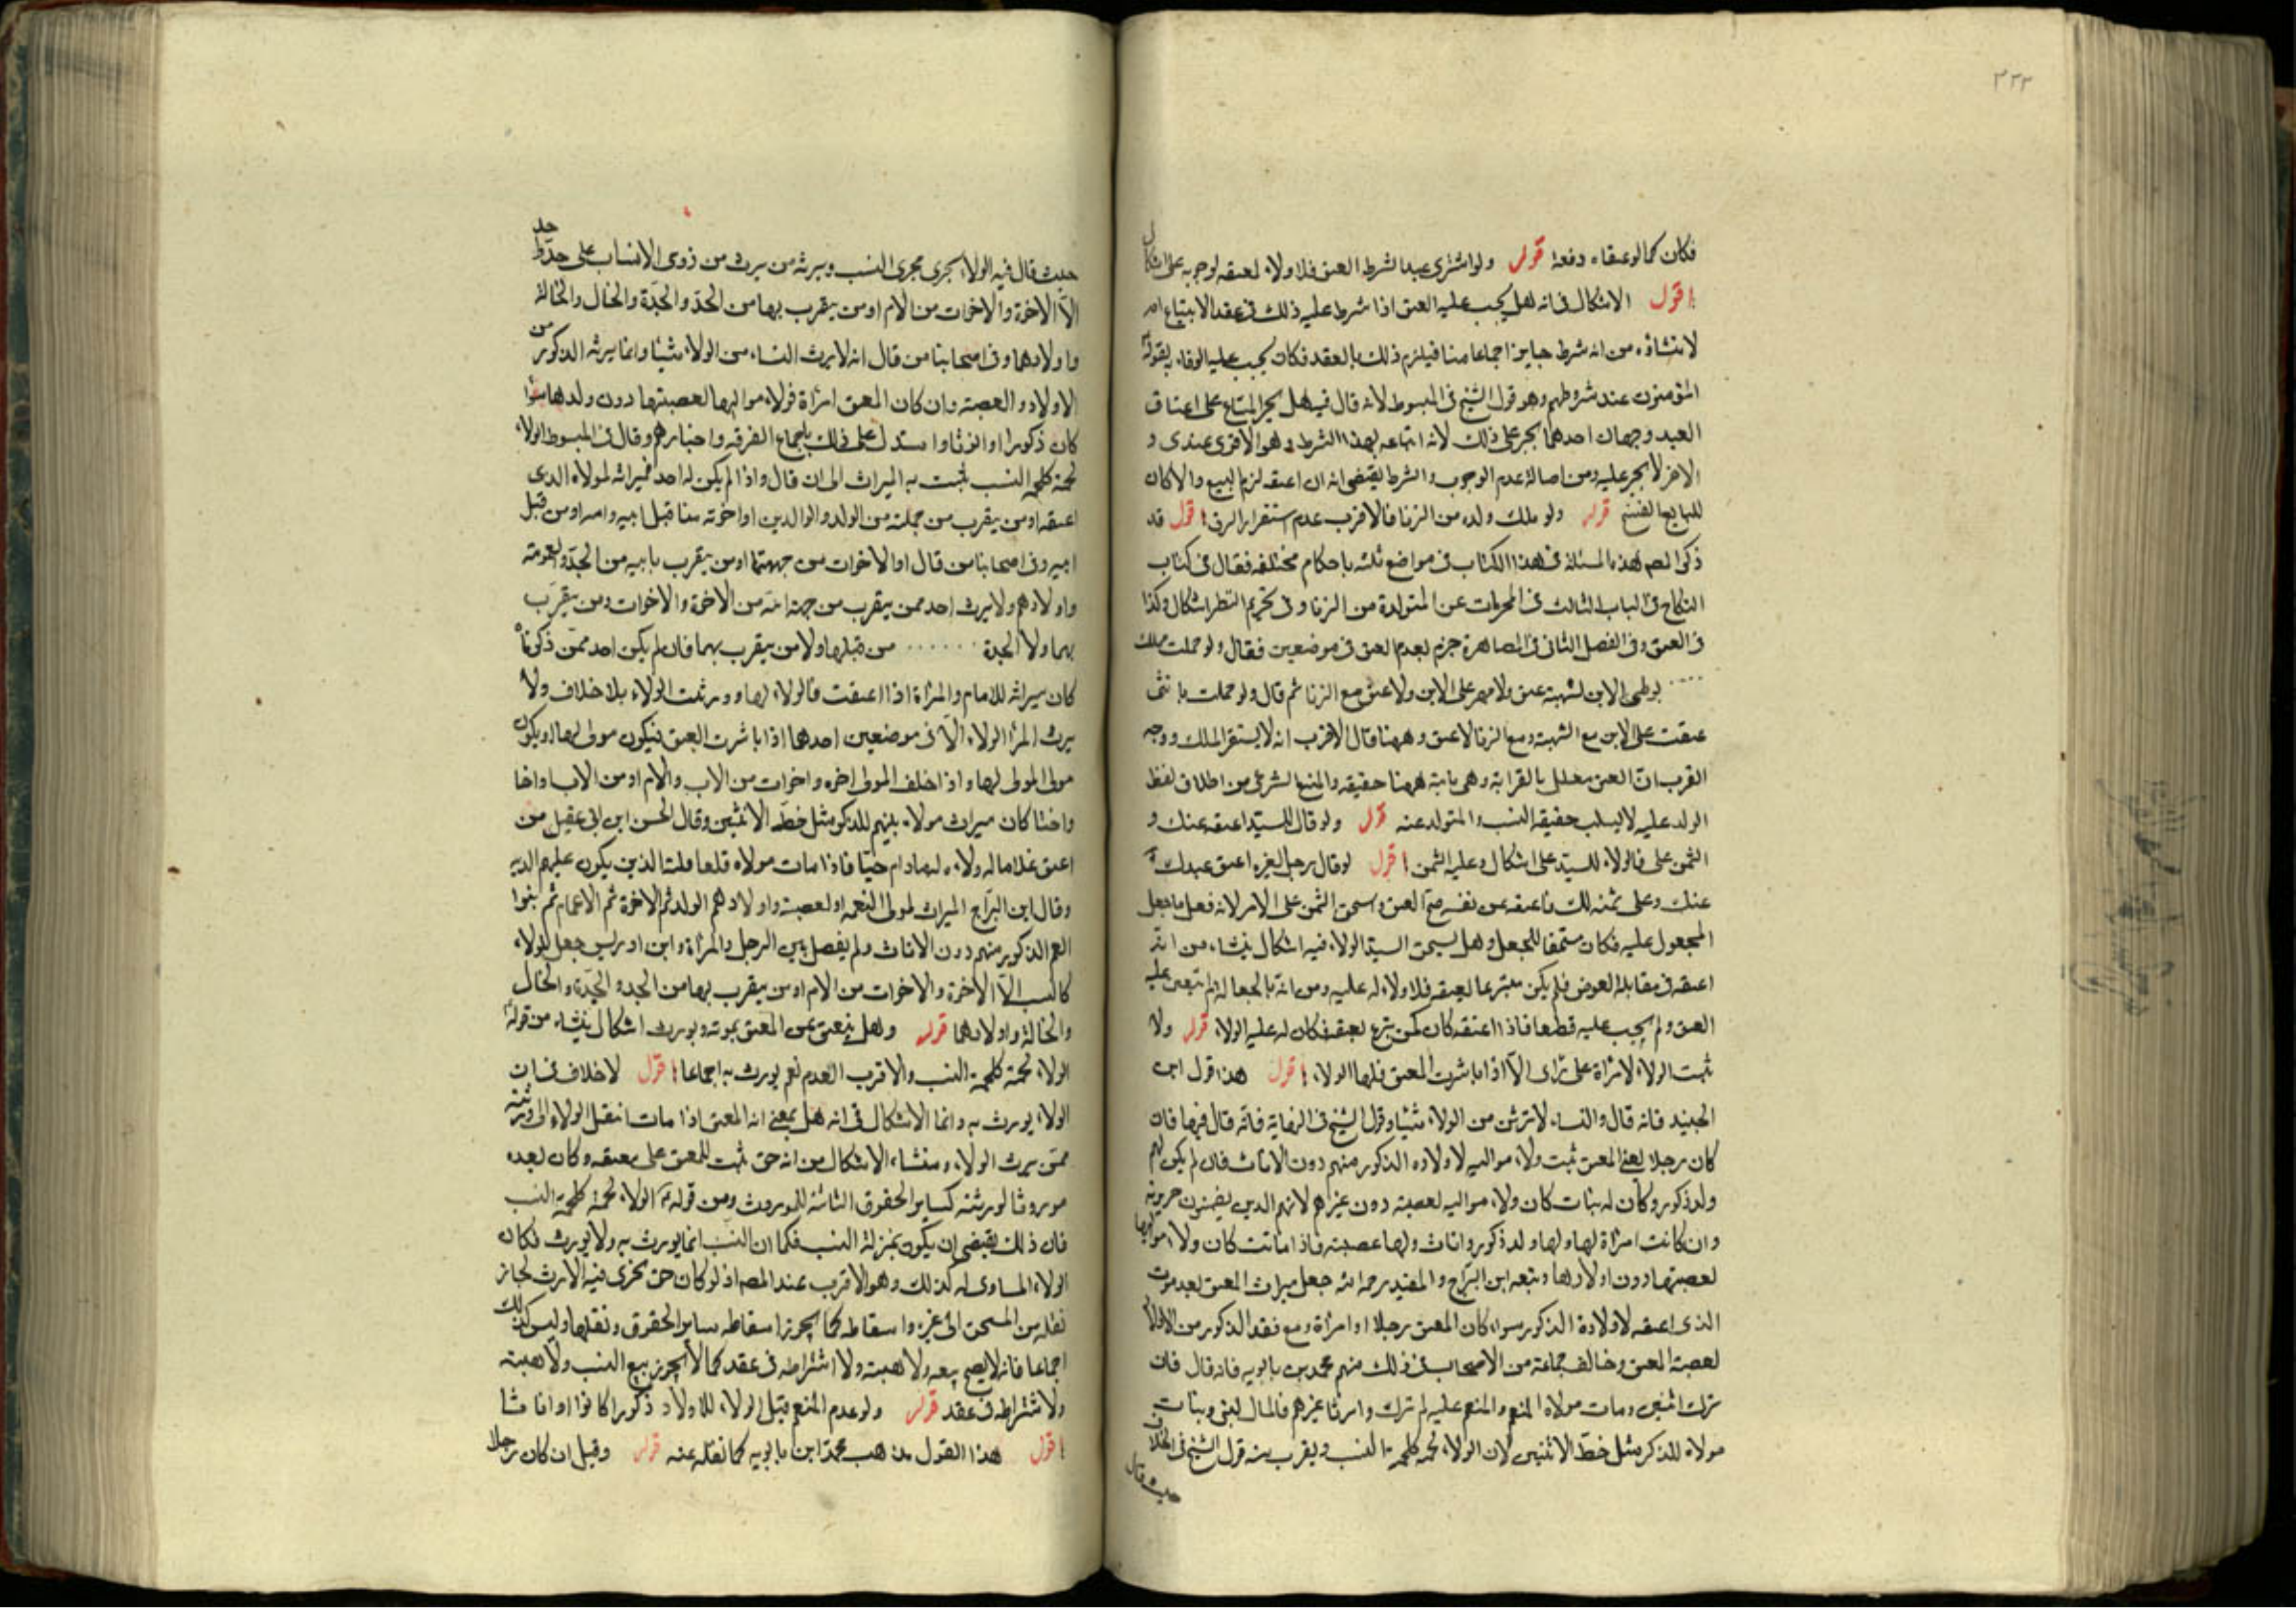 ٣٣٣
فكان كما لو عتقاه دفعة قوله ولو اشترى عبدا بشرط العتق فلا ولاء لعتقه لوجوبه على اشكال
اقول الاشكال فى انه هل يجب عليه العتق اذا شرط عليه ذلك فى عقد الابتياع ام
لا منشاؤه من انه شرط جايز اجماعا منا فيلزم ذلك بالعقد فكان يجب عليه الوفاء لقوله
المؤمنون عند شروطهم وهو قول الشيخ فى المبسوط لانه قال فيه هل يجبر المبتاع على اعتاق
العبد وجهان احدهما يجبر على ذلك لانه ابتاعه بهذا الشرط وهو الاقوى عندى و
الاخر لا يجبر عليه ومن اصالة عدم الوجوب والشرط يقتضى انه ان اعتقه لزم البيع والا كان
للبايع الفسخ قوله ولو ملك ولده من الزنا فالاقرب عدم استقرار الرق اقول قد
ذكر المص هذه المسئلة فى هذا الكتاب فى مواضع ثلثه باحكام مختلفه فقال فى كتاب
النكاح فى الباب الثالث فى المحرمات عن المتولدة من الزنا وفى تحريم النظر اشكال وكذا
فى العتق وفى الفصل الثانى فى المصاهرة جزم بعدم العتق فى موضعين فقال ولو حملت مملكـ
بوطى الابن لشبهة عتق ولا مهر على الابن ولا عتق مع الزنا ثم قال ولو حملت بانثى
عتقت على الابن مع الشبهة ومع الزنا لا عتق وههنا قال الاقرب انه لا يستقر الملك ووجه
القرب ان العتق معلل بالقرابة وهى ثابتة ههنا حقيقه والمنع الشرعى من اطلاق لفظ
الولد عليه لا يسلب حقيقة النسب والمتولد عنه قوله ولو قال للسيد اعتقه عنك و
الثمن على فالولاء للسيد على اشكال وعليه الثمن اقول لو قال رجل لغيره اعتق عبدك
عنك وعلى ثمنه لك فاعتقه عن نفسه صح العتق واستحق الثمن على الامر لانه فعل ما جعل
المجعول عليه فكان مستحقا للجعل وهل يستحق السيد الولاء فيه اشكال ينشاء من انه
اعتقه فى مقابلة العوض فلم يكن متبرعا لعتقه فلا ولاء له عليه ومن انه بالجعالة لم يتعين عليه
العتق ولم يجب عليه قطعا فاذا اعتقه كان كمن تبرع بعتقه فكان له عليه الولاء قوله ولا
يثبت الولاء لامراة على راى الا اذا باشرت العتق فلها الولاء اقول هذا قول ابن
الجنيد فانه قال والنساء لا ترثن من الولاء شيئا وقول الشيخ فى النهاية فانه قال فيها فان
كان رجلا يعنى المعتق ثبت ولاء مواليه لاولاده الذكور منهم دون الاناث فان لم يكن لهم
ولد ذكور وكان له بنات كان ولاء مواليه لعصبته دون غيرهم لانهم الذين يضمنون جريرته
وان كانت امراة لها ولها ولد ذكور واناث ولها عصبته فاذا ماتت كان ولاء مواليها
لعصبتها دون اولادها وتبعه ابن البراج والمفيد رحمه الله جعل ميراث المعتق بعد موت
الذى اعتقه لاولادة الذكور سواء كان المعتق رجلا او امراة ومع فقد الذكور من الاولاد
لعصبة المعتق وخالف جماعة من الاصحاب فى ذلك منهم محمد بن بابويه فانه قال فان
ترك اثنين ومات مولاه المنعم والمنعم عليه لم ترك وارثا غيرهم فالمال لبنى وبنات
مولاه للذكر مثل حظ الانثيين لان الولاء لحمة كلحمة النسب ويقرب منه قول الشيخ فى الخلاف
حيث قال
حيث قال فيه الولاء يجرى مجرى النسب ويرثه من يرث من ذوى الانساب على حد واحد
الا الاخوة والاخوات من الام او من يتقرب بها من الجد والجدة والخال والخالة
واولادهما وفى اصحابنا من قال انه لا يرث النساء من الولاء شيئا وانما يرثه الذكور من
الاولاد والعصبة وان كان المعتق امراة فولاء مواليها لعصبتها دون ولدها سواء
كان ذكورا او اناثا واستدل على ذلك باجماع الفرقه واخبارهم وقال فى المبسوط الولاء
لحمة كلحمة النسب يثبت به الميراث الى ان قال واذا لم يكن له احد فميراثه لمولاه الذى
اعتقه او من يتقرب من جهته من الولد والوالدين او اخوته من قبل ابيه وامه او من قبل
ابيه وفى اصحابنا من قال او الاخوات من جهتهما او من يتقرب بابيه من الجد والعمومة
واولادهم ولا يرث احد ممن يتقرب من جهة امه من الاخوة والاخوات ومن يتقرب
بهما ولا الجدة من قبلها ولا من يتقرب بهما فان لم يكن احد ممن ذكرناه
كان ميراثه للامام والمراة اذا اعتقت فالولاء لها وورثت الولاء بلا خلاف ولا
يرث المراة الولاء الا فى موضعين احدهما اذا باشرت العتق فيكون مولى لها او يكون
مولى المولى لها واذا خلف المولى اخوه واخوات من الاب والام او من الاب واخا
واختا كان ميراث مولاه بينهم للذكر مثل حظ الانثيين وقال الحسن ابن ابى عقيل من
اعتق غلاما له ولاءه له مادام حيا فاذا مات مولاه
وقال ابن البراج الميراث لمولى النعمة او لعصبته واولادهم الولد ثم الاخوة ثم الاعمام ثم بنوا
العم الذكور منهم دون الاناث ولم يفصل بين الرجل والمراة وابن ادريس جعل الولاء
كالنسب الا الاخوة والاخوات من الام او من يتقرب بها من الجد والجدة والخال
والخالة واولادهما قوله وهل ينعتق عن المعتق بموته ويورث اشكال ينشاء من قوله
الولاء لحمة كلحمة النسب والاقرب العدم نعم يورث به اجماعا اقول لا خلاف فى ان
الولاء يورث به وانما الاشكال فى انه هل بمعنى انه المعتق اذا مات انتقل الولاء الى ورثته
ممن يرث الولاء ومنشاء الاشكال من انه حق ثبت للمعتق على معتقه وكان بعده
موروثا لورثته كساير الحقوق الثابتة للموروث ومن قوله ع الولاء لحمة كلحمة النسب
فان ذلك يقتضى ان يكون بمنزلة النسب فكما ان النسب انما يورث به ولا يورث فكان
الولاء المساوى له كذلك وهو الاقرب عند المصنف اذ لو كان حق يجرى فيه الارث لجاز
نقله من المستحق الى غيره واسقاطه كما يجوز اسقاط ساير الحقوق ونقلها وليس كذلك
اجماعا فانه لا يصح بيعه ولا هبته ولا اشتراطه فى عقد كما لا يجوز بيع النسب ولا هبته
ولا اشتراطه فى عقد قوله ولو عدم المنعم قيل الولاء للاولاد ذكورا كانوا او اناثا
اقول هذا القول مذهب محمد ابن بابويه كما نقله عنه قوله وقيل ان كان رجلا